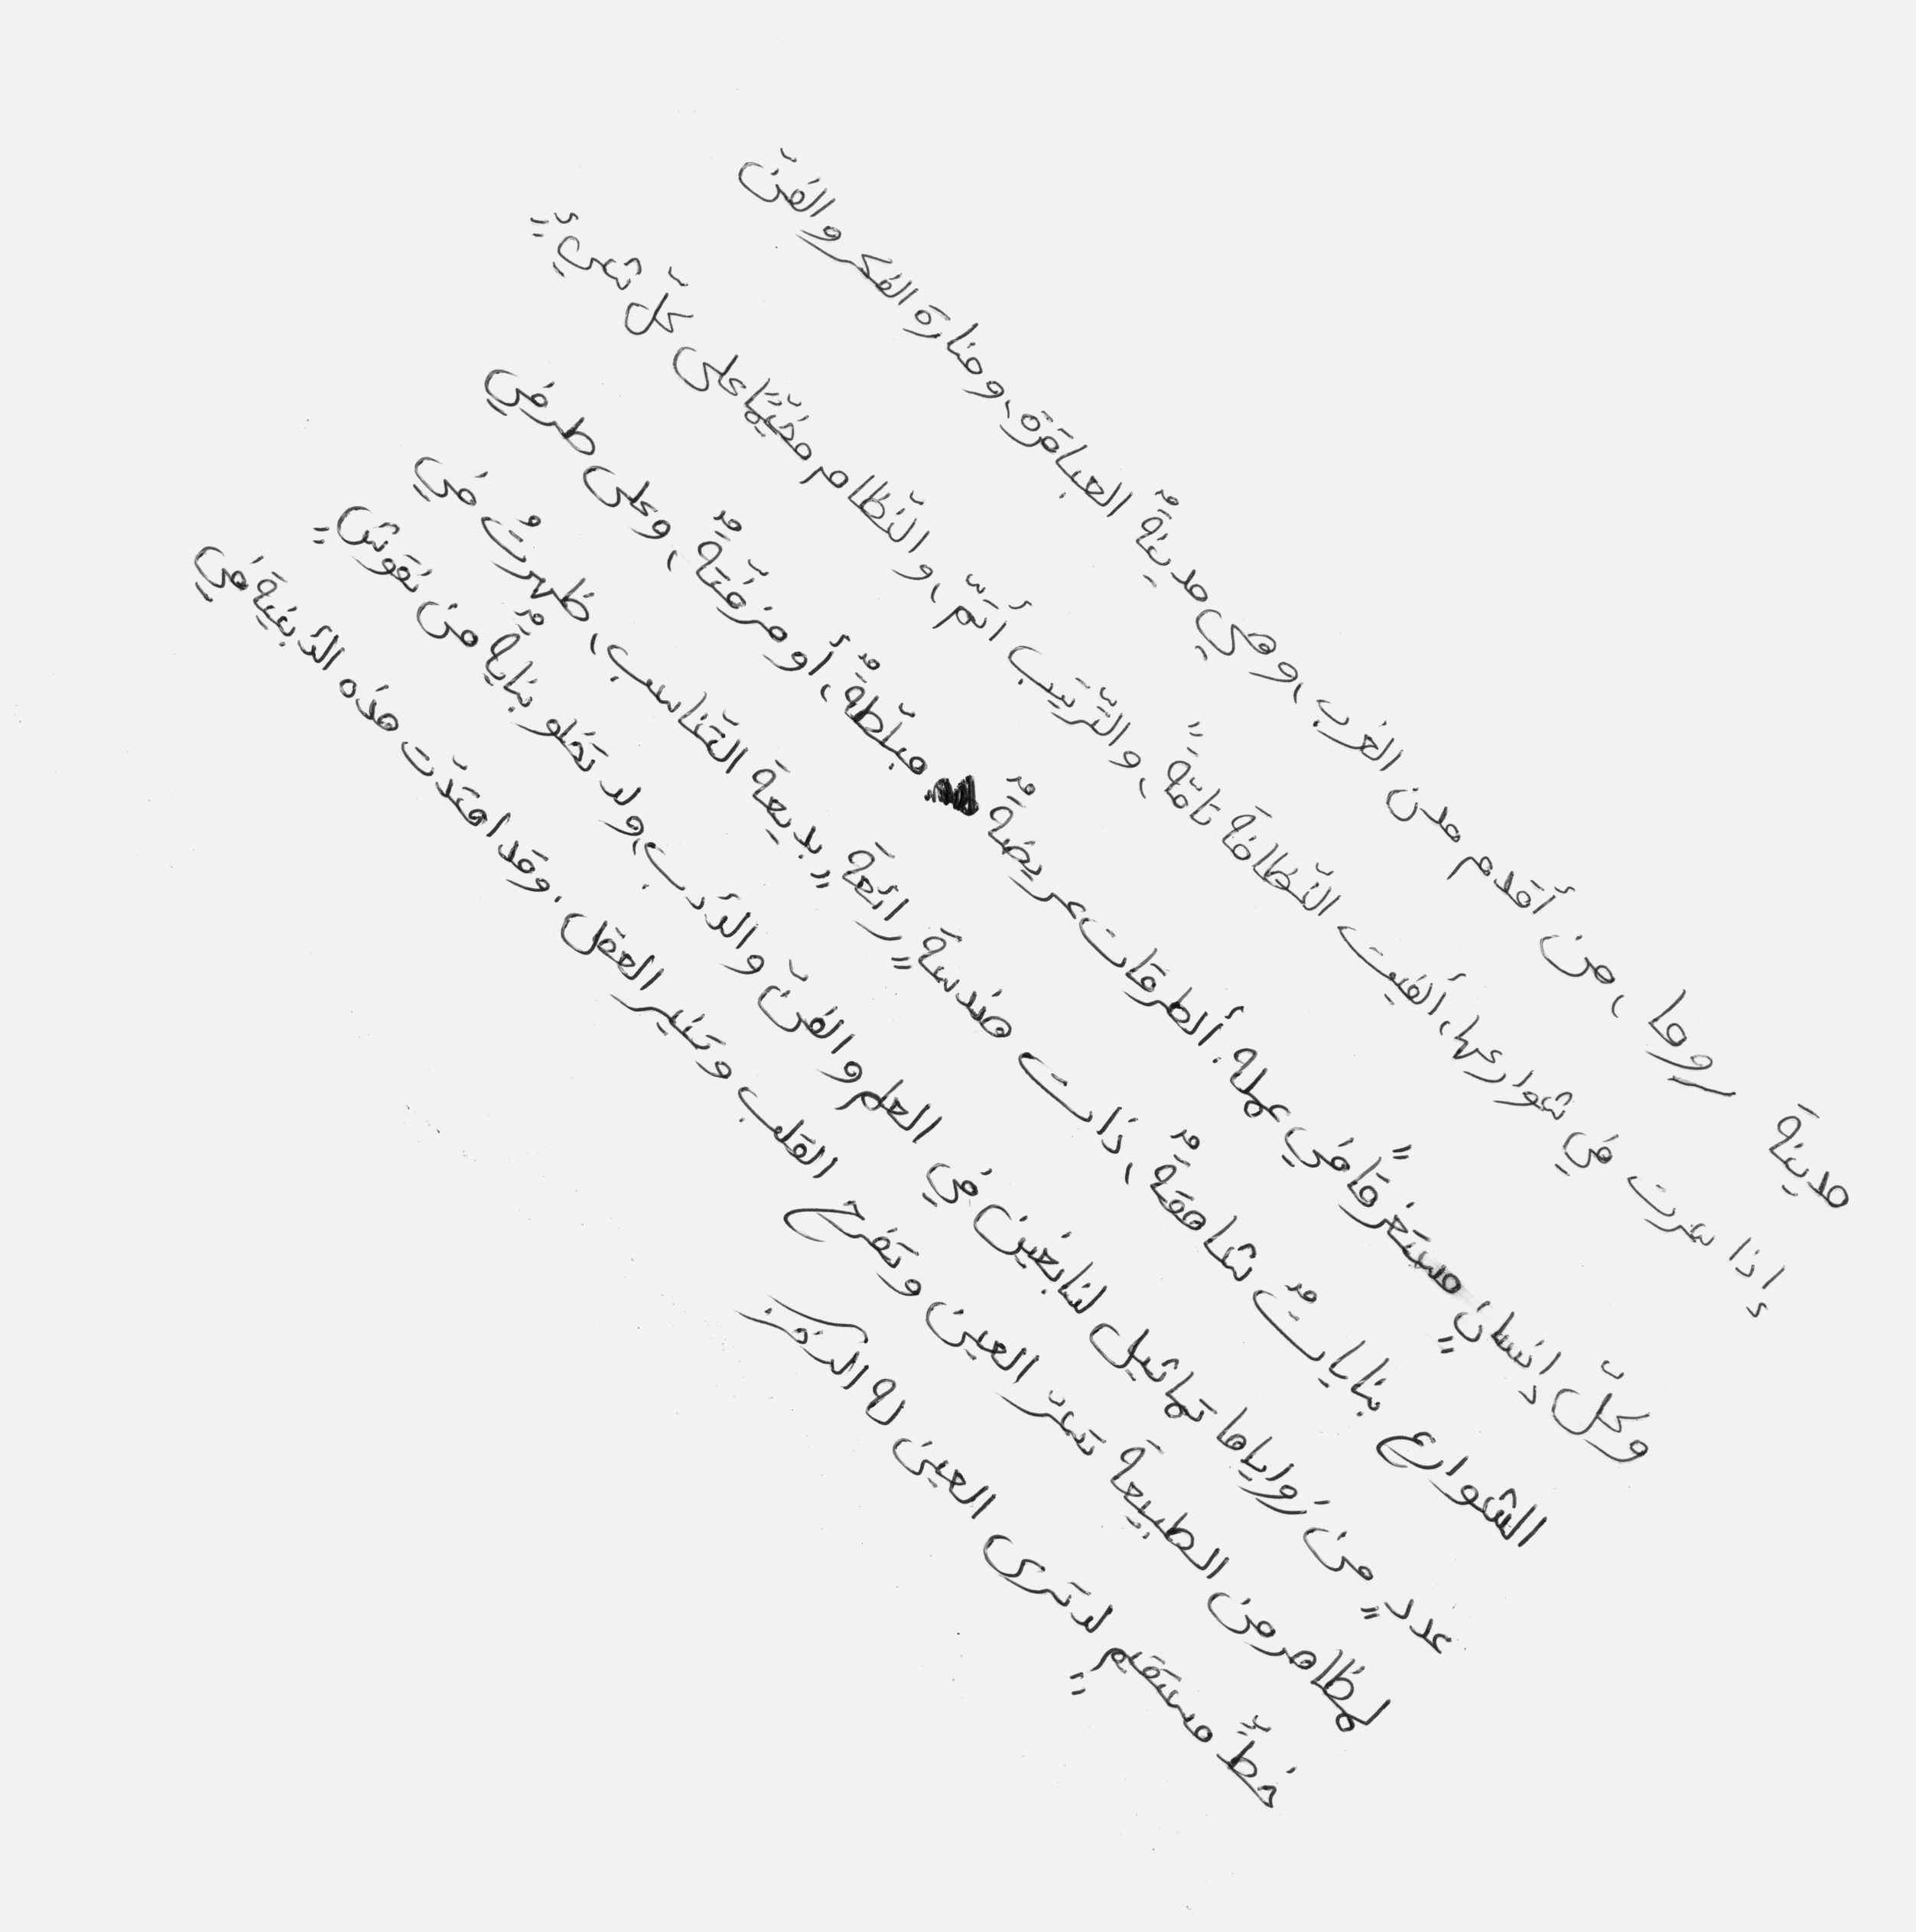 مدينة روما، من أقدم مدن الغرب، وهي مدينةٌ العباقرة، ومنارة الفكر والفنّ
إذا سرت في شوارعها، ألفيت النّظافة تامّةً، والتّرتيب أتمّ، والنّظام مخيّمًا على كلّ شيءٍ
وكلّ إنسانٍ مستغرقًا في عمله. ألطرقات عريضةٌ مبلّطةٌ، أو مزفّتةٌ، وعلى طرفي
الشوارع بناياتٌ شاهقةٌ، ذات هندسةٍ رائعةٍ بديعة التّناسب، ظهرتْ في
عددٍ من زواياها تماثيل لنابغين في العلم والفنّ والأدب، ولا تخلو بنايةٌ من نقوشٍ
لمظاهر من الطبيعة تسرّ العين وتفرح القلب وتنير العقل. وقد امتدّت هذه الأبنية في
خطٍّ مستقيمٍ لا ترى العين له آخر